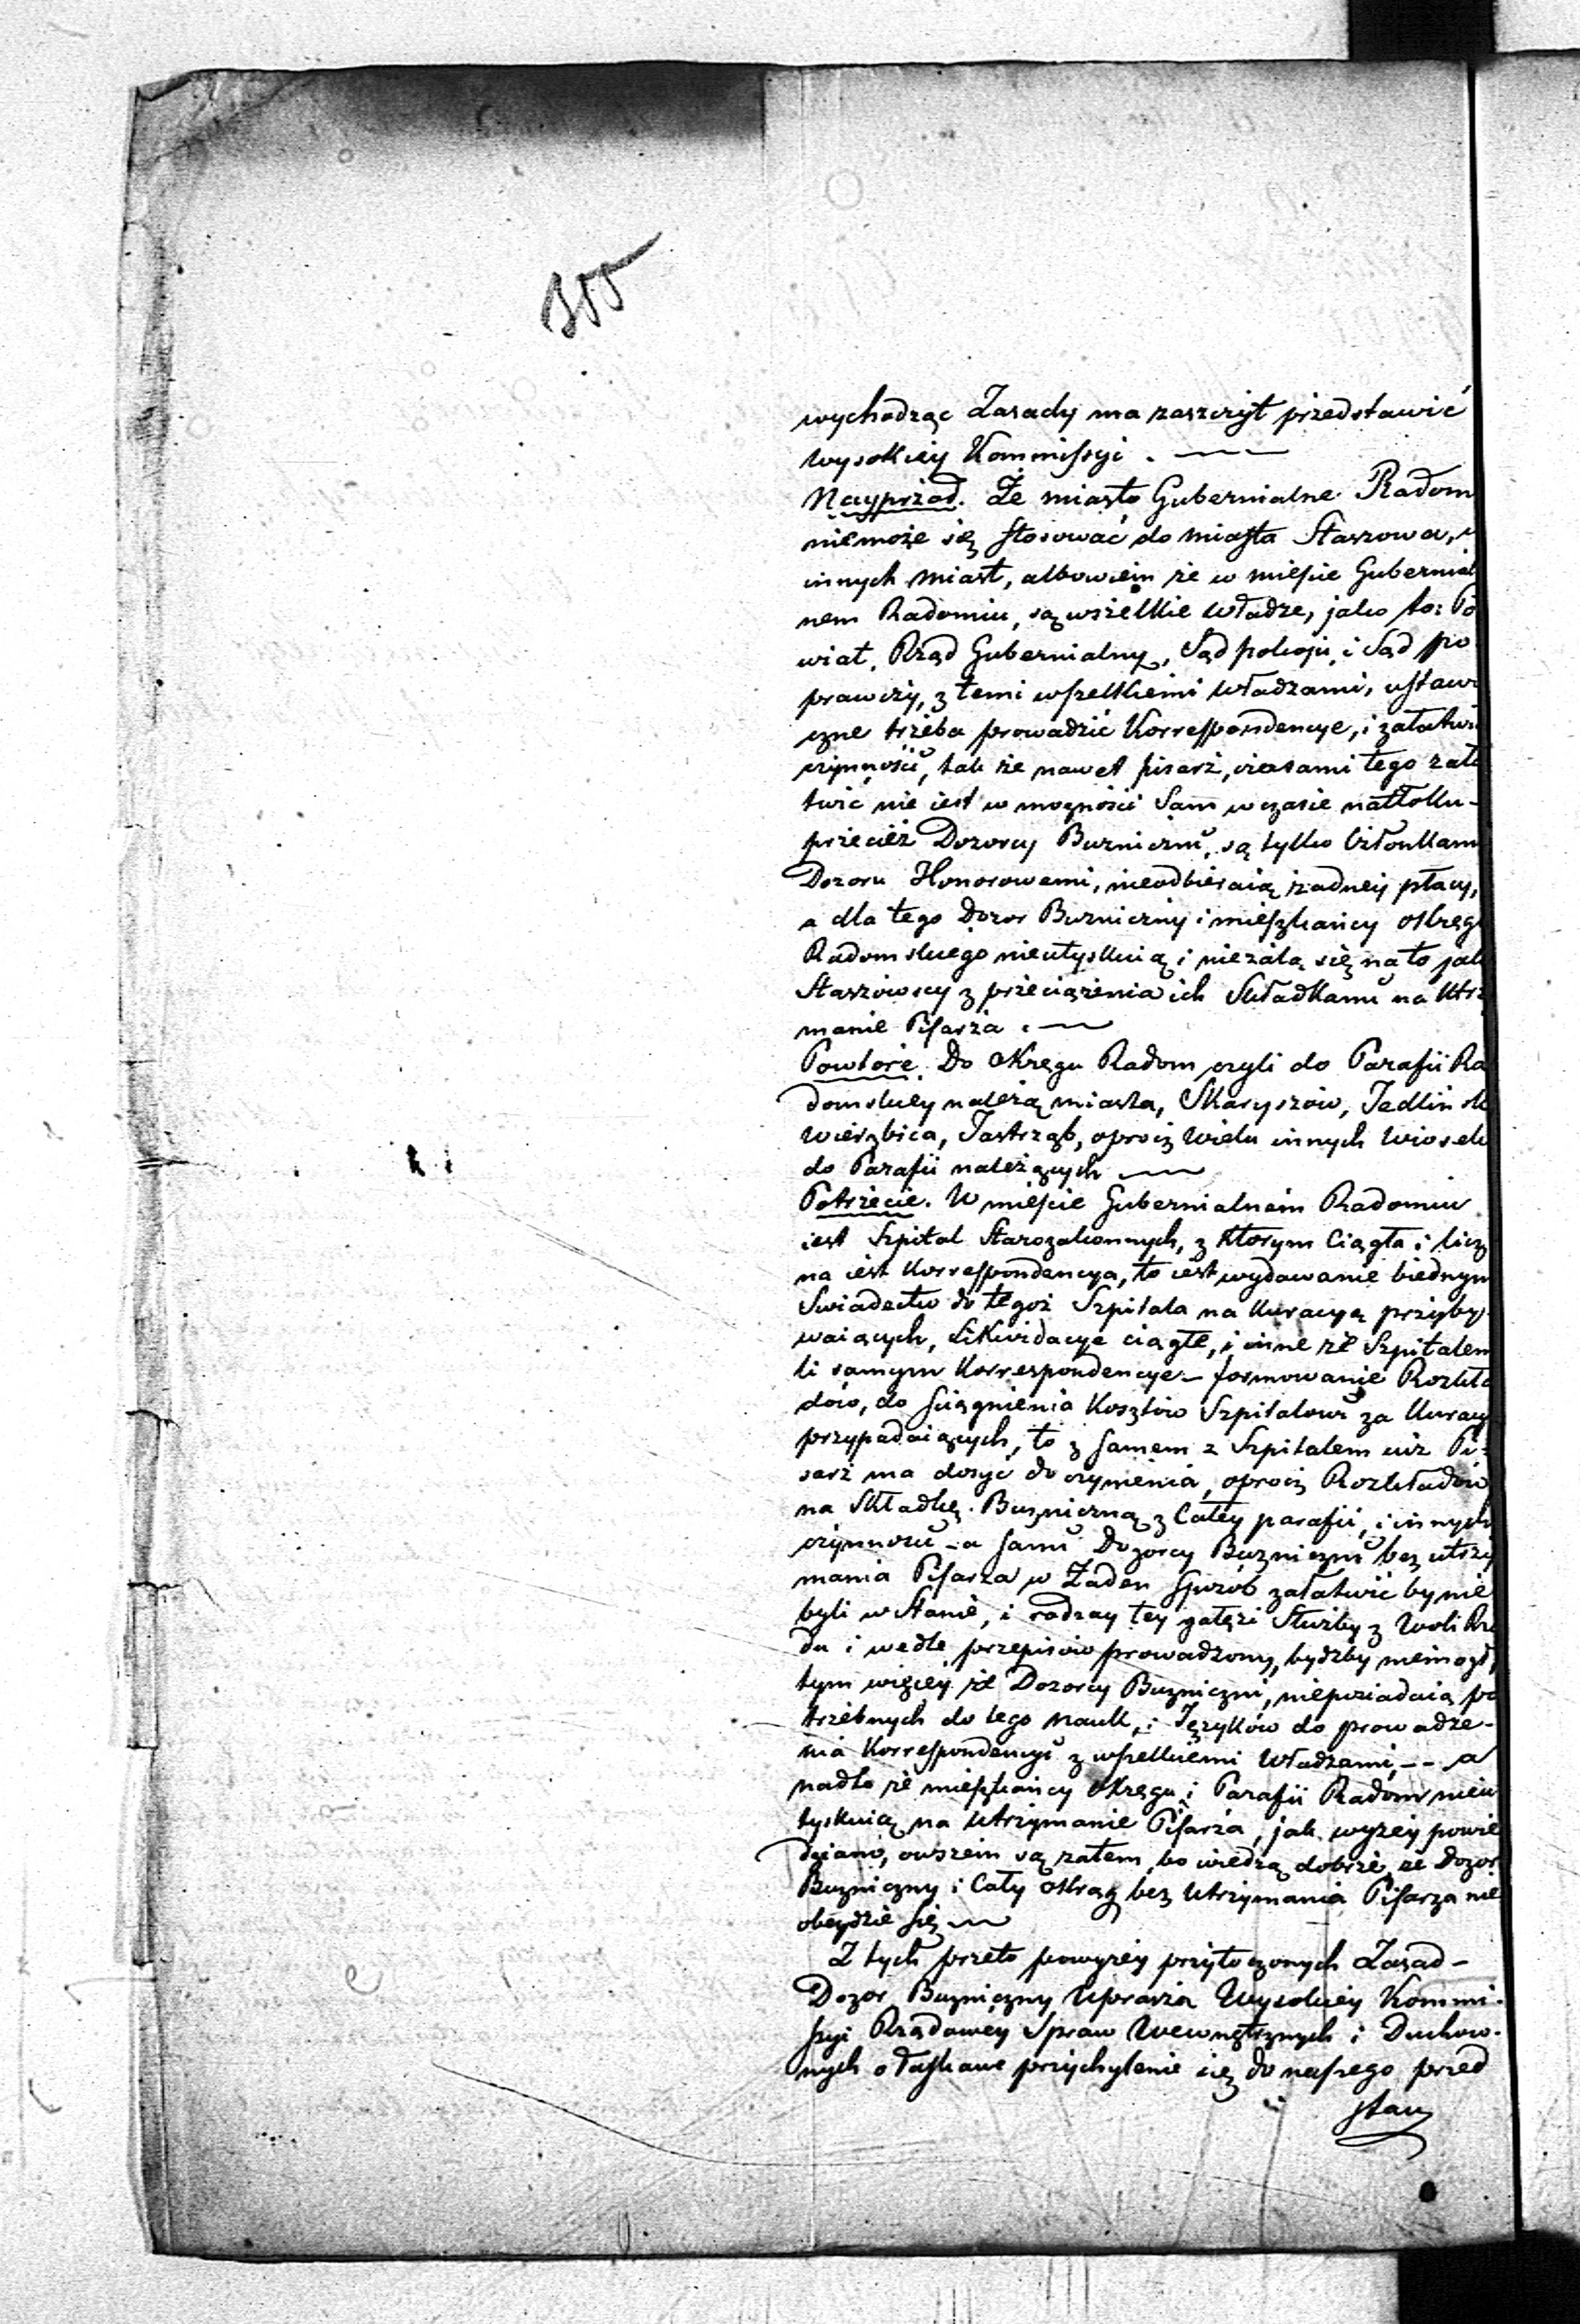 355
wychodząc Zasady ma zaszczyt przedstawić
wysokiey Kommissyi.
Nayprzod. Że miasto Gubernialne Radom
niemoże się stosować do miasta Staszowa,
innych miast, albowiem że w mieście Gubernial
nem Radomiu, są wszelkie władze, jako to: Po
wiat, Rząd Gubernialny, Sąd pokoju i Sąd po
prawczy, z temi wszelkiemi władzami, ustawi
czne trzeba prowadzić Korrespondencye, i załatwi
czynności, tak że nawet pisarz, czasami tego zała
twić nie iest w możności Sam w czasie natłoku-
przecież Dozorcy Bużniczni, są tylko Członkam
Dozoru Honorowemi, nieodbieraią żadney płacy,
a dla tego Dozor Bużniczny i mieszkańcy okręgu
Radomskiego nieutyskuią i nieżalą się na to jak
Staszowscy z przeciążenia ich Składkami na utrz
manie Pisarza.
Powtore. Do Okręgu Radom czyli do Parafii Ra
domskiey należą miasta, Skaryszów, Jedlińsk
Wierzbica, Jastrząb, oprocz wielu innych Wiosek
do Parafii należących
Potrzecie. W mieście Gubernialnem Radomiu
iest Szpital Starozakonnych, z Ktorym Ciągła i licz
na iest Korrespondencya, to iest wydawanie biednym
Swiadectw do tegoż Szpitala na Kuracyą przyby
waiących, Likwidacye ciągłe, i inne ze Szpitalem
ti samym Korrespondencye - formowanie Rozkła
dów, do sciągnienia Kosztów Szpitalowi za Kuracy
przypadaiących, to z samem z Szpitalem iuż Pi-
sarz ma dosyć do czynienia, oprocz Rozkładów
na Składkę Bużniczną z Całey parafii, i innych
czynnosci - a sami Dozorcy Bużniczni bez utrzy
mania Pisarza w Żaden sposób załatwić by nie
byli w Stanie, i rodzay tey gałęzi Służby z Woli Rzą
du i wedle przepisów prowadzony, bydźby niemogł,
tym więcey że Dozorcy Bużniczni, nieposiadaią po
trzebnych do tego nauk, i Języków do prowadze-
nia Korrespondencyi z wszelkiemi Władzami, -- a
nadto że mieszkańcy Okręgu i Parafii Radom nieu
tyskuią na utrzymanie Pisarza, jak wyżey powie
dziano, owszem są zatem, bo wiedzą dobrze, że Dozor
Bużniczny i Cały Okrąg bez Utrzymania Pisarza nie
obeydzie się
Z tych przeto powyżey przytoczonych Zasad -
Dozor Bużniczny Uprasza Wysokiey Kommi-
ssyi Rządowey Spraw Wewnętrznych i Duchow-
nych o łaskawe przychylenie się do naszego przed
staw